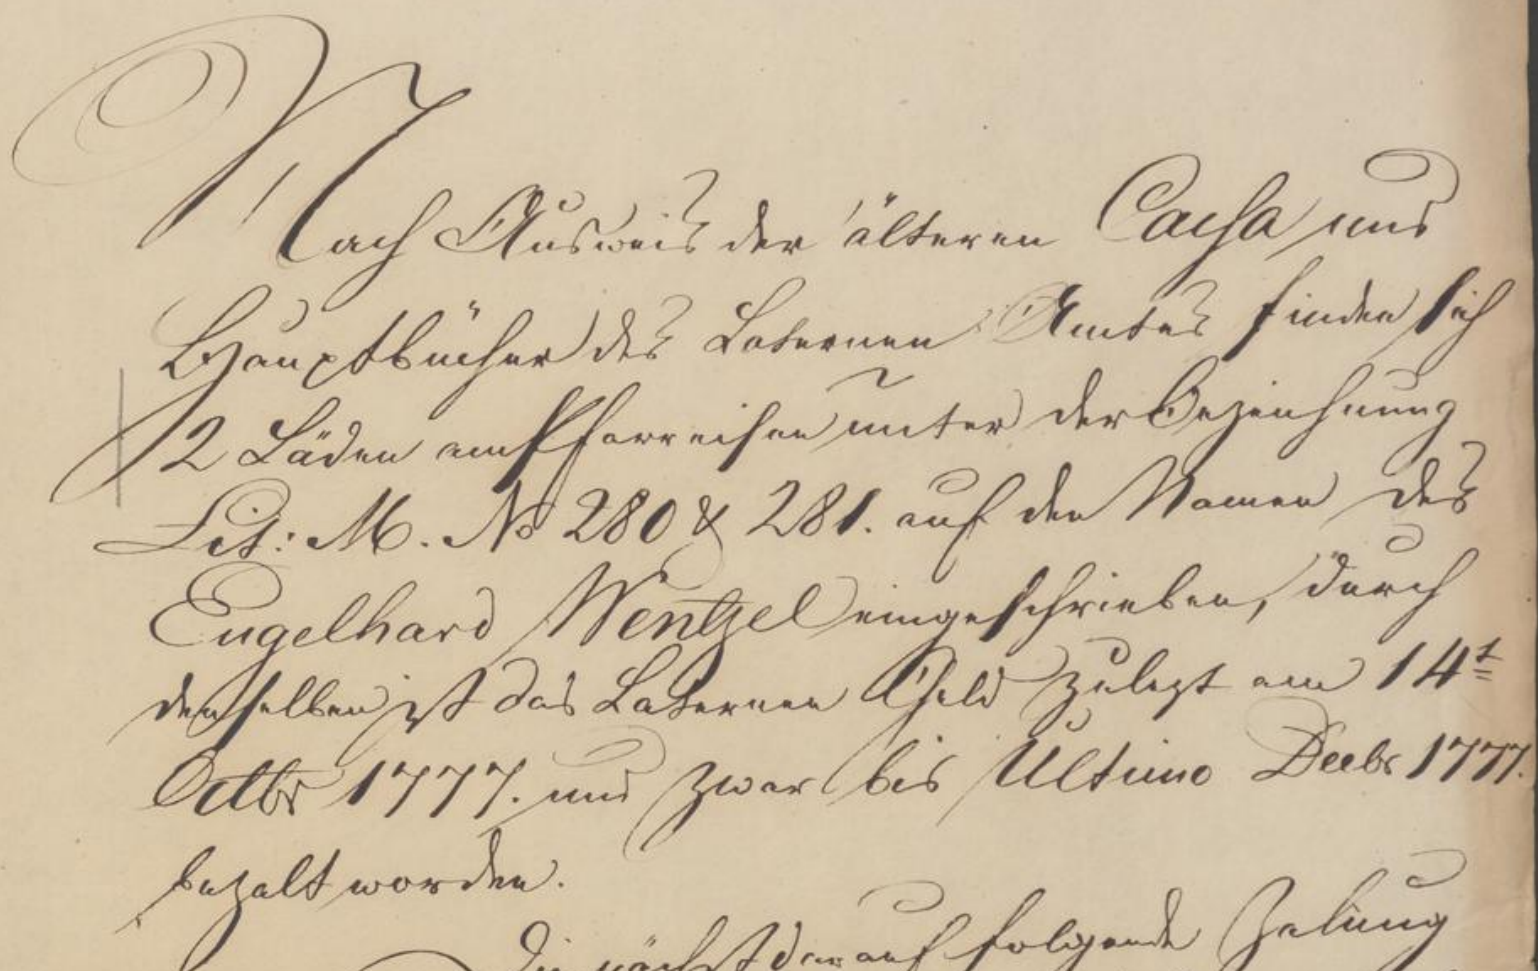 Nach Ausweis der älteren Cassa und
Hauptbücher des Laternen Amtes finden sich
2 Läden am Pfarreisen unter der Bezeichnung
Lit: M. No 280 & 281. auf den Namen des
Engelhard Wentzel eingeschrieben, durch
denselben ist das Laternen Geld zulezt am 14t
Octbr 1777. und zwar bis Ultimo Decbr 1777.
bezalt worden.
Die nächst darauf folgende Zalung